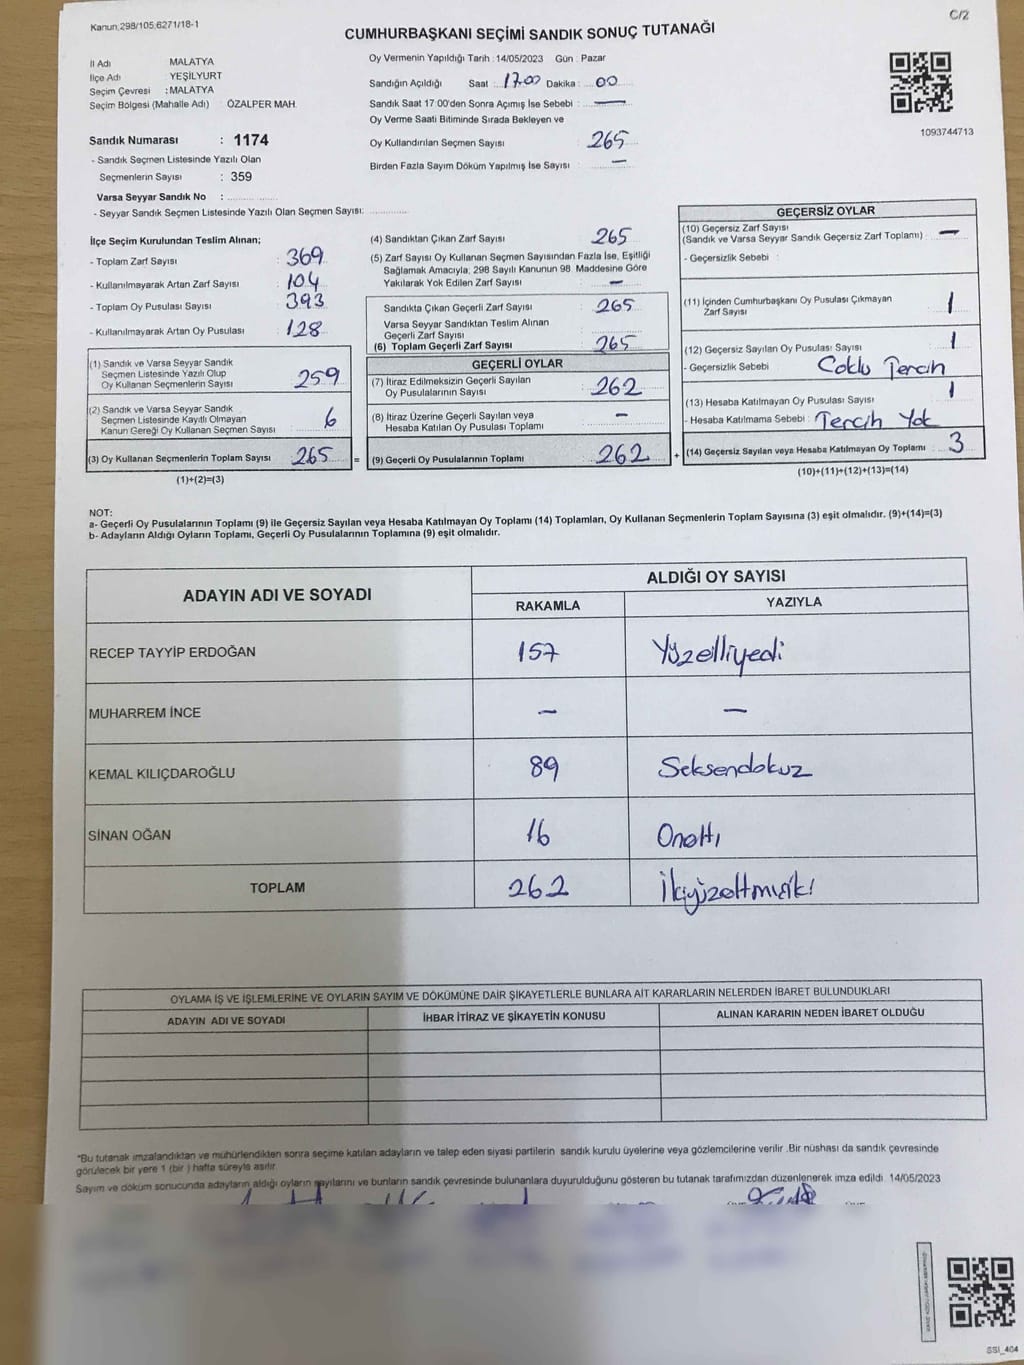 Kanun;298/105;6271/18-1
C/2
CUMHURBAŞKANI SEÇİMİ SANDIK SONUÇ TUTANAĞI
İl Adı MALATYA
İlçe Adı YEŞİLYURT
Seçim Çevresi : MALATYA
Seçim Bölgesi (Mahalle Adı) ÖZALPER MAH.
Sandık Numarası : 1174
- Sandık Seçmen Listesinde Yazılı Olan
Seçmenlerin Sayısı : 359
Varsa Seyyar Sandık No :
- Seyyar Sandık Seçmen Listesinde Yazılı Olan Seçmen Sayısı:
Oy Vermenin Yapıldığı Tarih : 14/05/2023 Gün : Pazar
Sandığın Açıldığı Saat : 17.00 Dakika : 00
Sandık Saat 17:00'den Sonra Açımış İse Sebebi : —
Oy Verme Saati Bitiminde Sırada Bekleyen ve
Oy Kullandırılan Seçmen Sayısı : 265
Birden Fazla Sayım Döküm Yapılmış İse Sayısı : —
1093744713
İlçe Seçim Kurulundan Teslim Alınan;
- Toplam Zarf Sayısı : 369
- Kullanılmayarak Artan Zarf Sayısı : 104
- Toplam Oy Pusulası Sayısı : 393
- Kullanılmayarak Artan Oy Pusulası : 128
(1) Sandık ve Varsa Seyyar Sandık
Seçmen Listesinde Yazılı Olup
Oy Kullanan Seçmenlerin Sayısı 259
(2) Sandık ve Varsa Seyyar Sandık
Seçmen Listesinde Kayıtlı Olmayan
Kanun Gereği Oy Kullanan Seçmen Sayısı 6
(3) Oy Kullanan Seçmenlerin Toplam Sayısı 265 =
(1)+(2)=(3)
(4) Sandıktan Çıkan Zarf Sayısı : 265
(5) Zarf Sayısı Oy Kullanan Seçmen Sayısından Fazla İse, Eşitliği
Sağlamak Amacıyla; 298 Sayılı Kanunun 98. Maddesine Göre
Yakılarak Yok Edilen Zarf Sayısı : —
Sandıkta Çıkan Geçerli Zarf Sayısı : 265
Varsa Seyyar Sandıktan Teslim Alınan
Geçerli Zarf Sayısı
(6) Toplam Geçerli Zarf Sayısı : 265
GEÇERLİ OYLAR
(7) İtiraz Edilmeksizin Geçerli Sayılan
Oy Pusulalarının Sayısı : 262
(8) İtiraz Üzerine Geçerli Sayılan veya
Hesaba Katılan Oy Pusulası Toplamı : —
(9) Geçerli Oy Pusulalarının Toplamı 262 +
GEÇERSİZ OYLAR
(10) Geçersiz Zarf Sayısı
(Sandık ve Varsa Seyyar Sandık Geçersiz Zarf Toplamı) : —
- Geçersizlik Sebebi :
(11) İçinden Cumhurbaşkanı Oy Pusulası Çıkmayan
Zarf Sayısı 1
(12) Geçersiz Sayılan Oy Pusulası Sayısı 1
- Geçersizlik Sebebi Çoklu Tercih
(13) Hesaba Katılmayan Oy Pusulası Sayısı 1
- Hesaba Katılmama Sebebi : Tercih Yok
(14) Geçersiz Sayılan veya Hesaba Katılmayan Oy Toplamı : 3
(10)+(11)+(12)+(13)=(14)
NOT:
a- Geçerli Oy Pusulalarının Toplamı (9) ile Geçersiz Sayılan veya Hesaba Katılmayan Oy Toplamı (14) Toplamları, Oy Kullanan Seçmenlerin Toplam Sayısına (3) eşit olmalıdır. (9)+(14)=(3)
b- Adayların Aldığı Oyların Toplamı, Geçerli Oy Pusulalarının Toplamına (9) eşit olmalıdır.
ADAYIN ADI VE SOYADI ALDIĞI OY SAYISI
RAKAMLA YAZIYLA
RECEP TAYYİP ERDOĞAN 157 Yüzelliyedi
MUHARREM İNCE — —
KEMAL KILIÇDAROĞLU 89 Seksendokuz
SİNAN OĞAN 16 Onaltı
TOPLAM 262 İkiyüzaltmışiki
OYLAMA İŞ VE İŞLEMLERİNE VE OYLARIN SAYIM VE DÖKÜMÜNE DAİR ŞİKAYETLERLE BUNLARA AİT KARARLARIN NELERDEN İBARET BULUNDUKLARI
ADAYIN ADI VE SOYADI İHBAR İTİRAZ VE ŞİKAYETİN KONUSU ALINAN KARARIN NEDEN İBARET OLDUĞU
*Bu tutanak imzalandıktan ve mühürlendikten sonra seçime katılan adayların ve talep eden siyasi partilerin sandık kurulu üyelerine veya gözlemcilerine verilir .Bir nüshası da sandık çevresinde
görülecek bir yere 1 (bir ) hafta süreyle asılır.
Sayım ve döküm sonucunda adayların aldığı oyların sayılarını ve bunların sandık çevresinde bulunanlara duyurulduğunu gösteren bu tutanak tarafımızdan düzenlenerek imza edildi. 14/05/2023
SSI_404